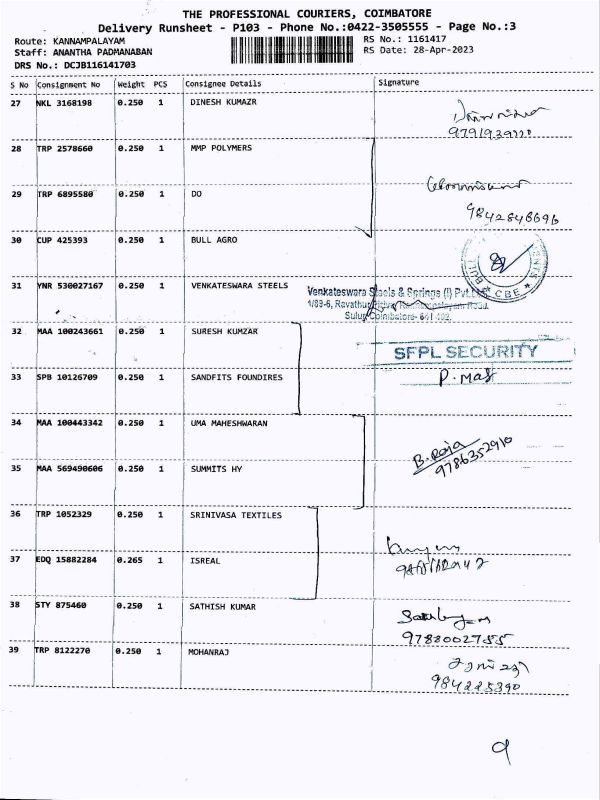 THE PROFESSIONAL COURIERS, COIMBATORE
Delivery Runsheet - P103 - Phone No.:0422-3505555 - Page No.:3
Route: KANNAMPALAYAM
RS No.: 1161417
Staff: ANANTHA PADMANABAN
RS Date: 28-Apr-2023
DRS No.: DCJB116141703
S No Consignment No Weight PCS Consignee Details Signature
27 NKL 3168198 0.250 1 DINESH KUMAZR
28 TRP 2578660 0.250 1 MMP POLYMERS
29 TRP 6895580 0.250 1 DO
9842848696
30 CUP 425393 0.250 1 BULL AGRO
CBE
31 YNR 530027167 0.250 1 VENKATESWARA STEELS
Venkateswara Steels & Springs (I) Pvt Ltd.
Sulur Coimbatore- 641 402.
32 MAA 100243661 0.250 1 SURESH KUMZAR
SFPL SECURITY
33 SPB 10126709 0.250 1 SANDFITS FOUNDIRES
P.
34 MAA 100443342 0.250 1 UMA MAHESHWARAN
B. Raja
9786352910
35 MAA 569490606 0.250 1 SUMMITS HY
36 TRP 1052329 0.250 1 SRINIVASA TEXTILES
37 EDQ 15882284 0.265 1 ISREAL
38 STY 875460 0.250 1 SATHISH KUMAR
9788002755
39 TRP 8122270 0.250 1 MOHANRAJ
984225390
9